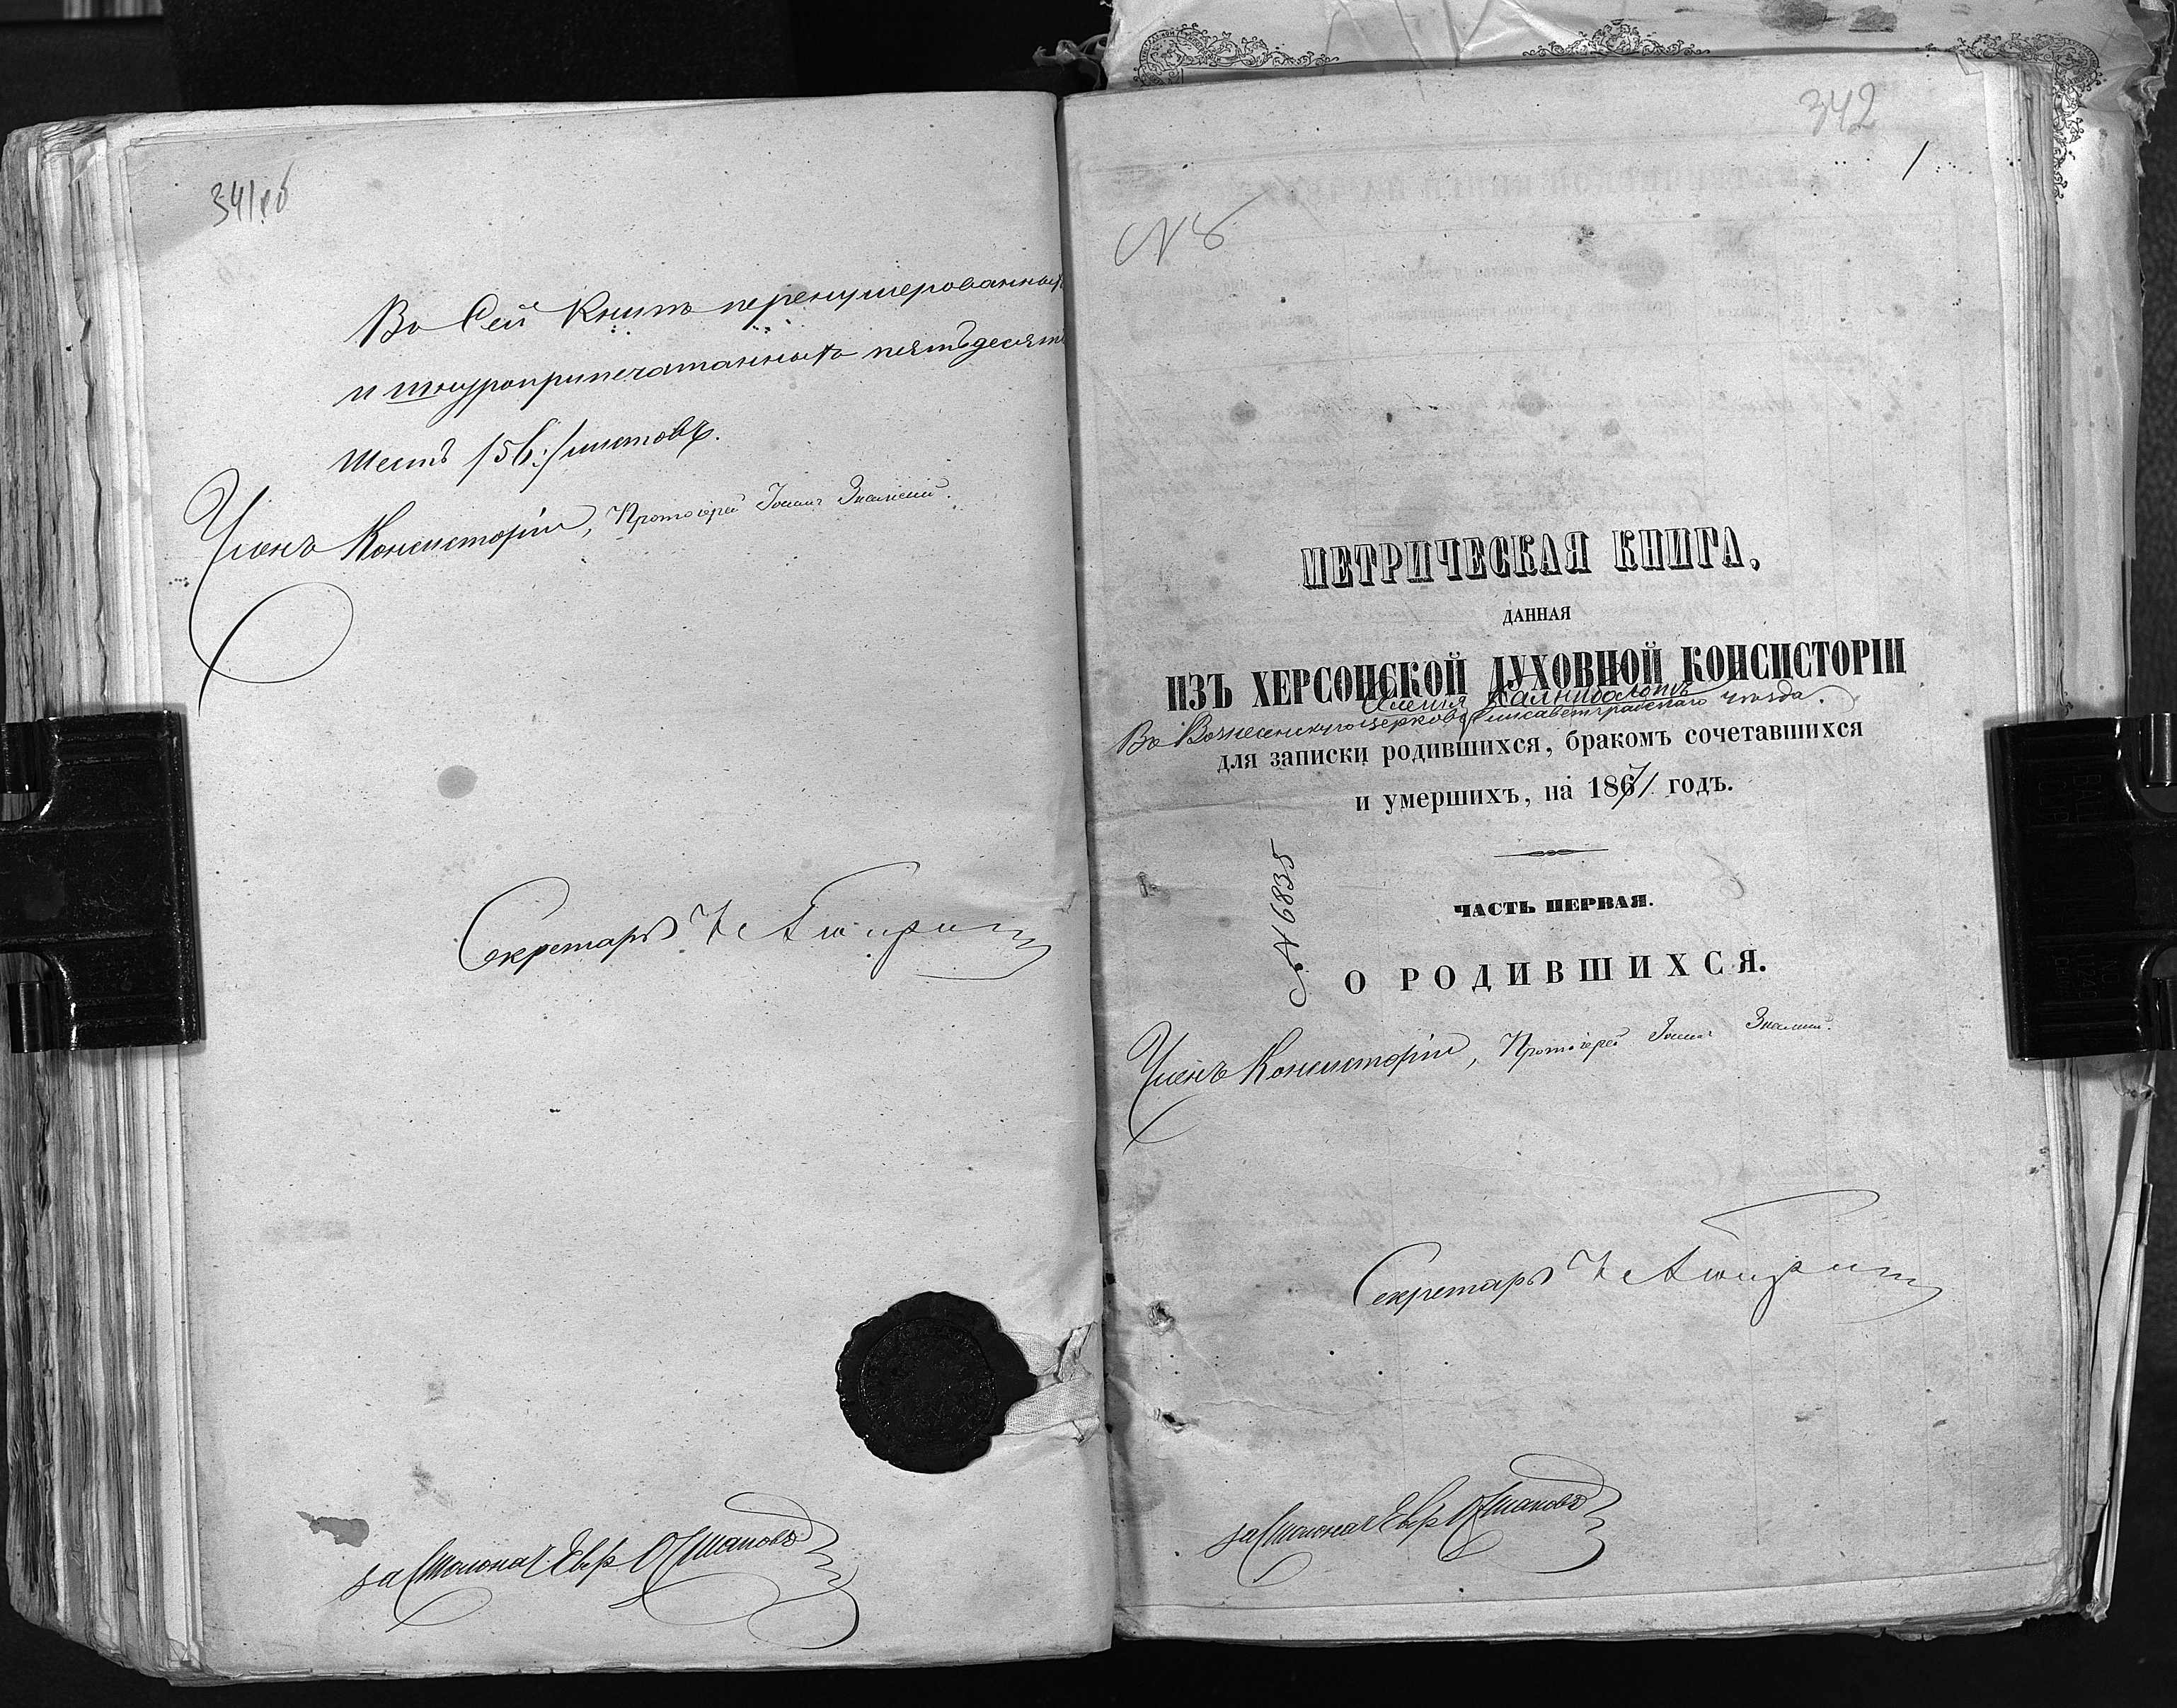 341 об
Въ Сей Книгѣ перенумерованныхъ
и шнуроприпечатанныхъ пятьдесятъ
шесть /56:/ листовъ.
Членъ Консисторіи, Протоіерей Іоаннъ Знаменскій.
Секретарь
за Столонач. Евр.
342
1
N 8
МЕТРИЧЕСКАЯ КНИГА,
ДАННАЯ
ИЗЪ ХЕРСОНСКОЙ ДУХОВНОЙ КОНСИСТОРІИ
имѣнія Калниболотъ
Въ Вознесенскую церковь Елисаветградскаго уѣзда.
для записки родившихся, бракомъ сочетавшихся
и умершихъ, на 1871 годъ.
№ 6835
ЧАСТЬ ПЕРВАЯ.
О РОДИВШИХСЯ.
Членъ Консисторіи, Протоіерей Іоаннъ Знаменскій.
Секретарь
за Столонач. Евр.